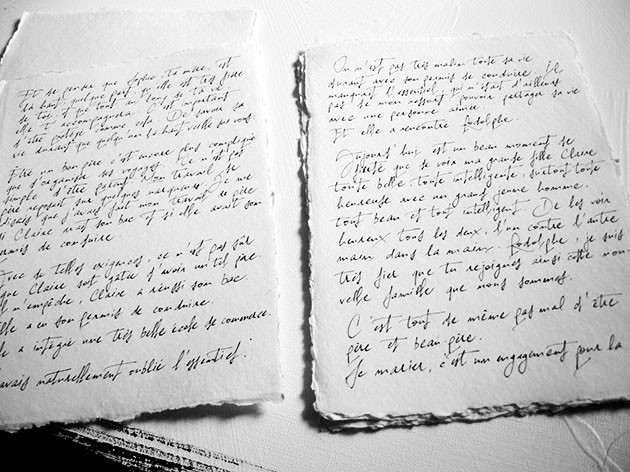 Et je pense que Sophie, ta mère, est
là haut quelque part, qu'elle est très fière
de toi, et que tout au long de ta vie
elle t'accompagnera. C'est important
d'être protégé comme cela. De savoir sa
vie durant que quelqu'un là haut veille sur vous.
Etre un bon père c'est encore plus compliqué
que d'organiser ses voyages. Ce n'est pas
simple d'être parent. Mon travail de
père reposait sur quelques marqueurs. Je me
disais que j'aurais fait mon travail de père
si Claire avait son bac et si elle avait son
permis de conduire.
Avec de telles exigences, ce n'est pas sûr
que Claire soit gâtée d'avoir un tel père.
Il n'empêche, Claire a réussi son bac.
Elle a eu son permis de conduire.
Elle a intégré une très belle école de commerce.
J'avais naturellement oublié l'essentiel.
On n'est pas très malin toute sa vie
durant avec son permis de conduire. Il
manquait l'essentiel, qui n'était d'ailleurs
pas de mon ressort, pouvoir partager sa vie
avec une personne aimée.
Et elle a rencontré Rodolphe.
Aujourd'hui est un beau moment de
fierté que de voir ma grande fille Claire
toute belle, toute intelligente, surtout toute
heureuse avec un grand jeune homme.
tout beau et tout intelligent. De les voir
heureux tous les deux, l'un contre l'autre
main dans la main. Rodolphe, je suis
très fier que tu rejoignes ainsi cette nou-
velle famille que nous sommes.
C'est tout de même pas mal d'être
père et beau père.
Se marier, c'est un engagement pour la